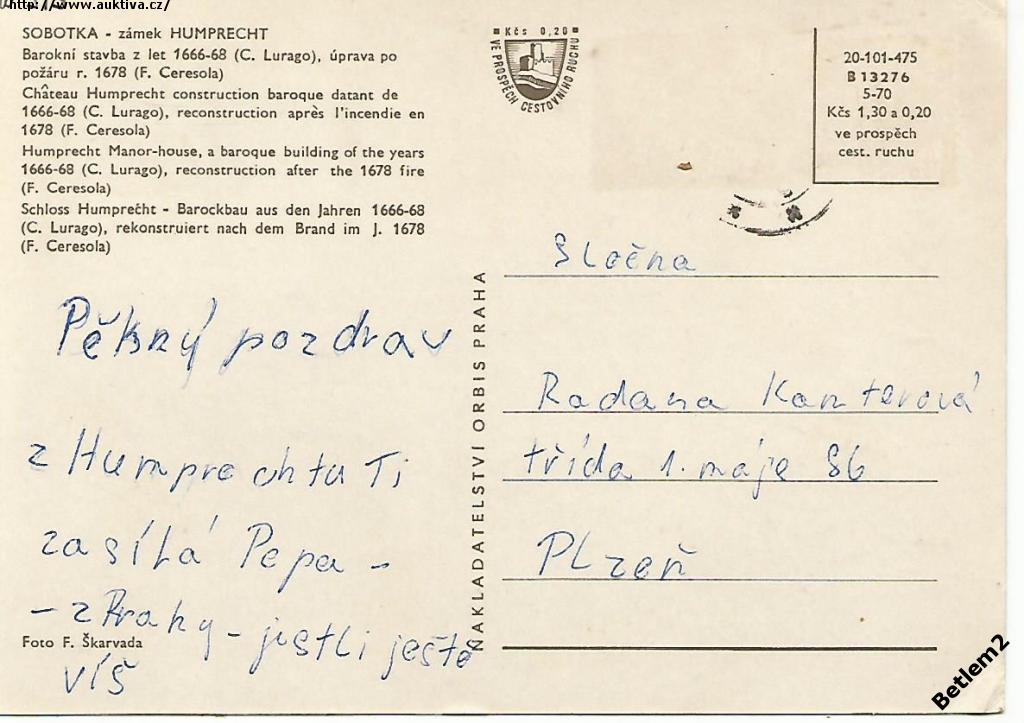 http://www.auktiva.cz/
SOBOTKA - zámek HUMPRECHT
Barokní stavba z let 1666-68 (C. Lurago), úprava po
požáru r. 1678 (F. Ceresola)
Château Humprecht construction baroque datant de
1666-68 (C. Lurago), reconstruction après l'incendie en
1678 (F. Ceresola)
Humprecht Manor-house, a baroque building of the years
1666-68 (C. Lurago), reconstruction after the 1678 fire
(F. Ceresola)
Schloss Humprecht - Barockbau aus den Jahren 1666-68
(C. Lurago), rekonstruiert nach dem Brand im J. 1678
(F. Ceresola)
Pěkný pozdrav
z Humprechtu Ti
zasílá Pepa -
- z Prahy - jestli ještě
víš
Foto F. Škarvada
NAKLADATELSTVÍ ORBIS PRAHA
Kčs 0,20
VE PROSPĚCH CESTOVNÍHO RUCHU
20-101-475
B 13276
5-70
Kčs 1,30 a 0,20
ve prospěch
cest. ruchu
Slečna
Radana Kanterová
třída 1. máje 86
Plzeň
Betlem2